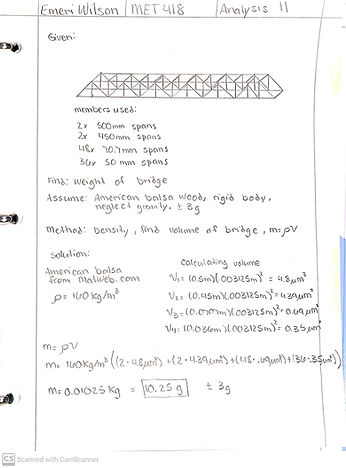 Emeri Wilson | MET 418 | Analysis 11
Given:
members used:
2x 500mm spans
2x 450mm spans
48x 70.7mm spans
36x 50 mm spans
Find: Weight of bridge
Assume: American balsa wood, rigid body,
neglect gravity, ± 3g
Method: Density, find volume of bridge, m=ρV
Solution:
American balsa
from Matweb.com
ρ = 160 kg/m³
Calculating volume
V₁ = (0.5m)(.003125m)² = 4.8μm³
V₂ = (0.45m)(.003125m)² = 4.39μm³
V₃ = (0.0707m)(.003125m)² = 0.69μm³
V₄ = (0.036m)(.003125m)² = 0.35μm³
m = ρV
m = 160 kg/m³ ((2·4.8μm³) + (2·4.39μm³) + (48·.69μm³) + (36·.35μm³))
m = 0.01025 kg = 10.25 g ± 3g
CS Scanned with CamScanner